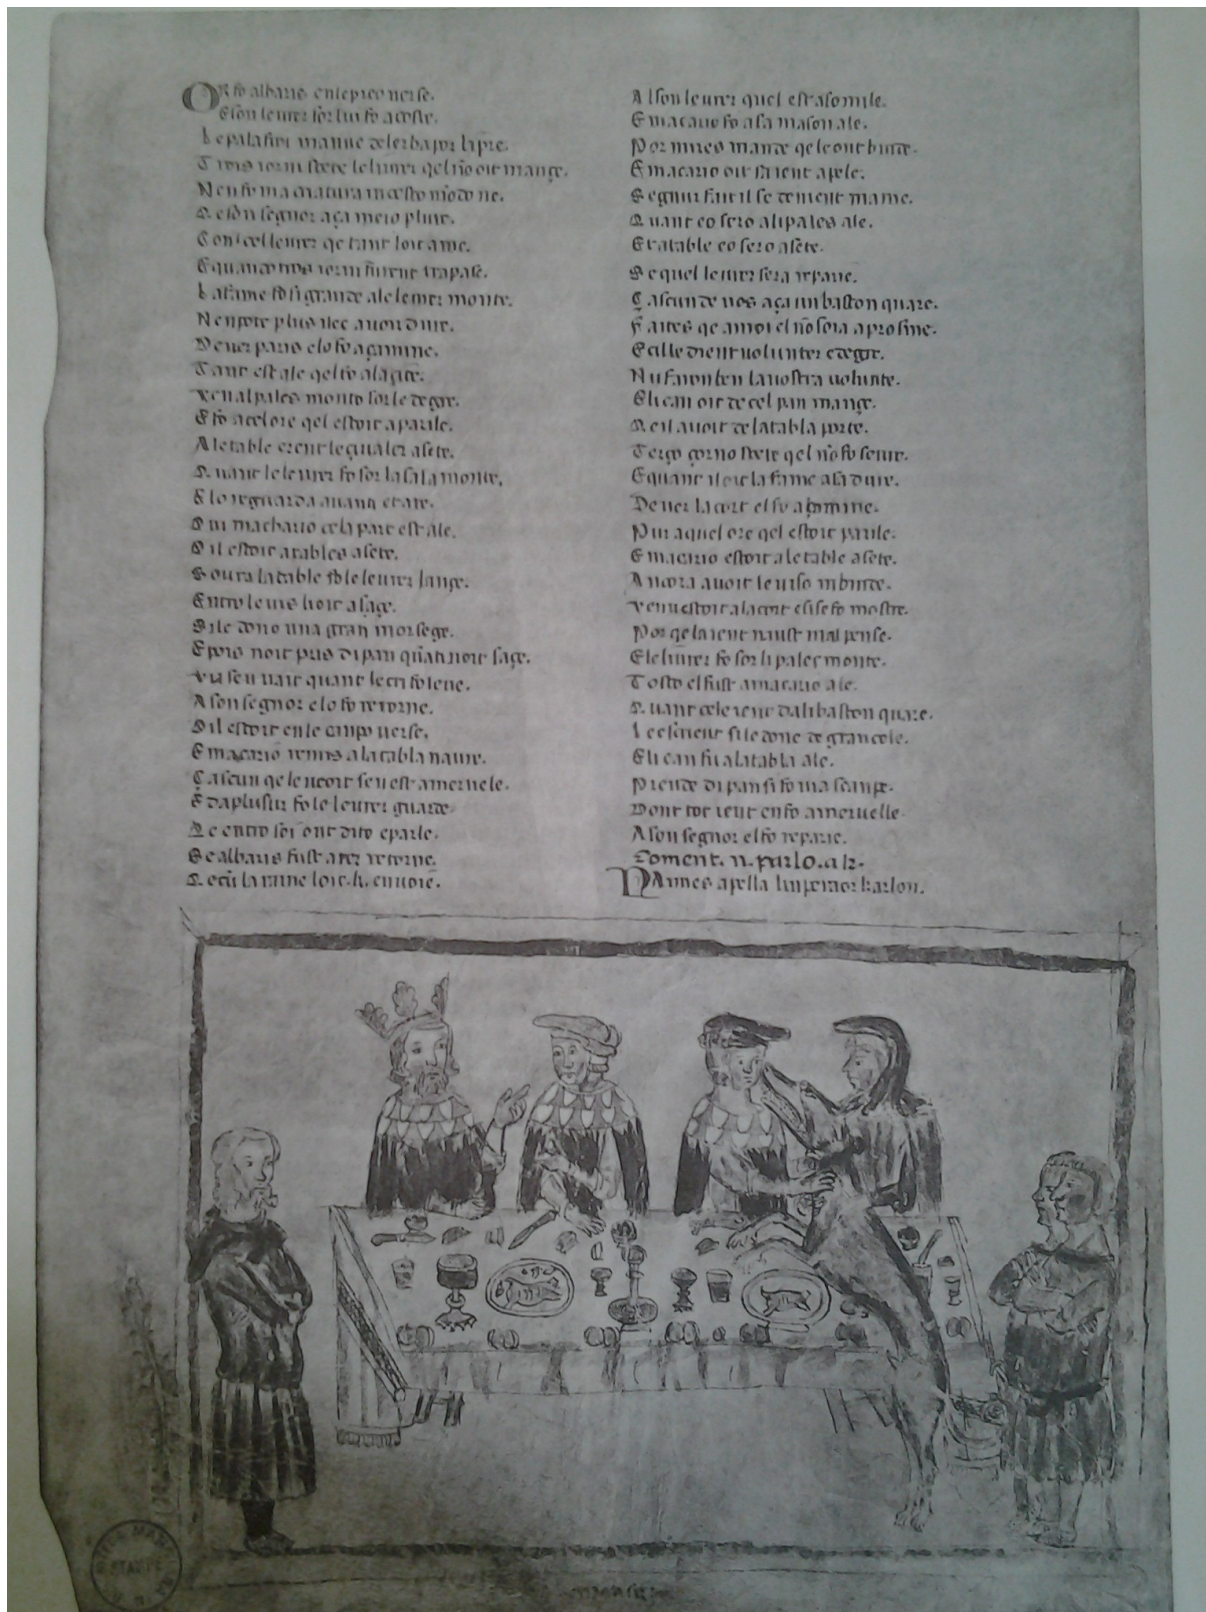 OR fo albaris en le preo verse.
E son levrer sor lui fo acoste.
Le palafroi manue de l erba por li pre.
Trois jorni stete le levrer qe no oit mange.
Nen fo ma criatura in cesto mondo ne.
Qe son segnor aça meio plure.
Con cel levrer qe tant l oit ame.
E quando trois jorni furent trapase.
La fame fo si grande a le levrer monte.
Nen pote plus ilec avoir dure.
Dever paris elo fo açamine.
Tant est ale qe l fo a la cite.
Ven al pales monto sor le degre.
E fo a cel ore qe l estoit aparile.
A le table erent le çivaler asete.
Quant le levrer fo sor la sala monte.
Elo reguarda avanti et are.
Qui machario cela part est ale.
O il estoit a tables asete.
Soura la table fo le levrer lançe.
Entro le vis l oit asaçe.
Si le dono una gran morsege.
E pois noit pris di pan quanti n oit saçe.
Via s en vait quant le cri fo leve.
A son segnor elo fo retorne.
O il estoit en le canpo verse.
E macario remis a la tabla navre.
Çascun qe le veoit s en est amervele.
E da plusur fo le levrer guarde
Qe entro soi ont dito e parle.
Se albaris fust arer retorne.
Qe cun la raine l oit .k. envoie.
A l son levrer quel est asomile.
E macario fo a sa mason ale.
Por mires mande qe le ont binde.
E macario oit si rient apele.
Segnur fait il se de ment m ame.
Quant eo sero a li pales ale.
Et a table eo sero asete.
Se quel levrer sera repaire.
Çascun de vos aça un baston quare.
Faites qe a moi el no soia aprosime.
E cille dient volunter e degre.
Nu faron ben la vostra volunte.
E li can oit de cel pan mançe.
Qe il avoit de la tabla porte.
Terço çorno stete qe l no fo senue.
E quant il oit la fame a sa dure.
Dever la cort el fo açamine.
Pur a quel ore qe l estoit parile.
E macario estoit a le table asete.
Ancora avoit le viso inbinde.
Venu estoit a la cort e si se fo mostre.
Por qe la jent n aust mal pense.
E le livrer fo sor li pales monte.
Tosto el fust a macario ale.
Quant cele jent da li baston quare.
Le escrient si le done de gran cole.
E li can fu a la tabla ale.
Prende di pan si fo via scanpe.
Dont tot jent en fo amervelle
A son segnor el fo reparie.
Coment. n. parlo. a k.
NAimes apella l inperaor karlon.